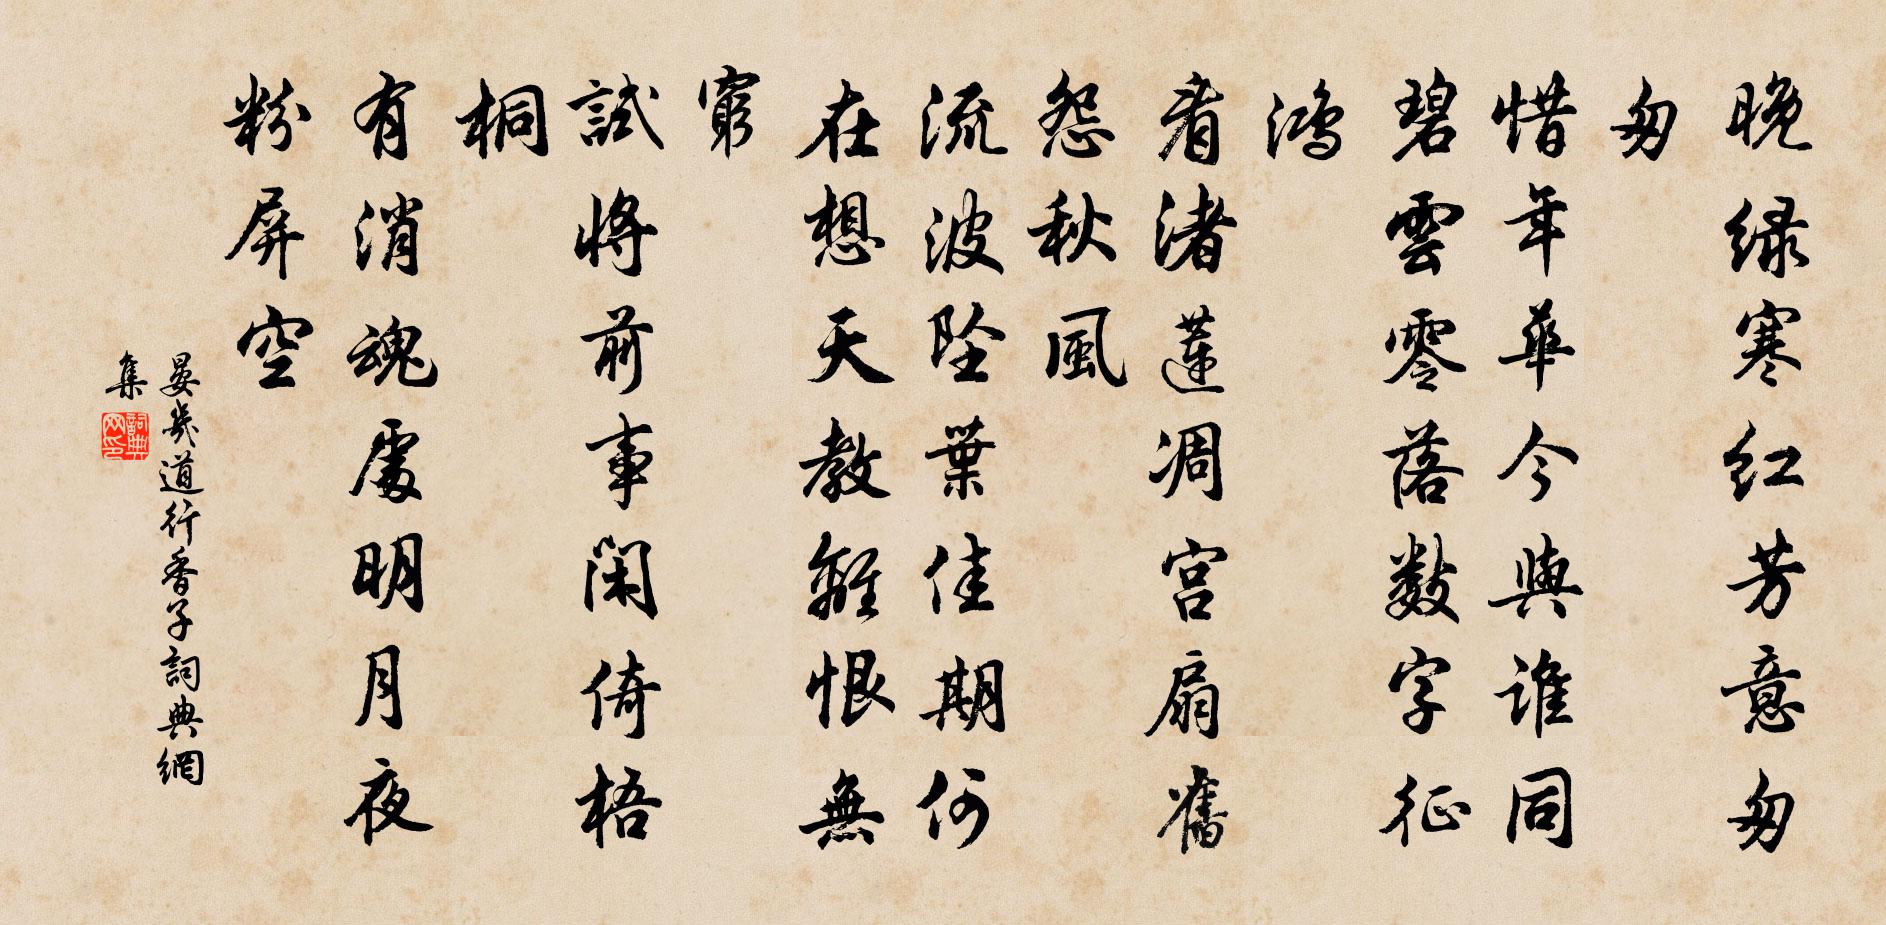 晚绿寒红芳意匆
匆
惜年華今與誰同
碧雲零落數字征
鴻
看渚蓮凋宫扇舊
怨秋風
流波坠葉佳期何
在想天教離恨無
窮
試將前事閑倚梧
桐
有消魂處明月夜
粉屏空
晏幾道行香子詞典網
集
詞典
网印